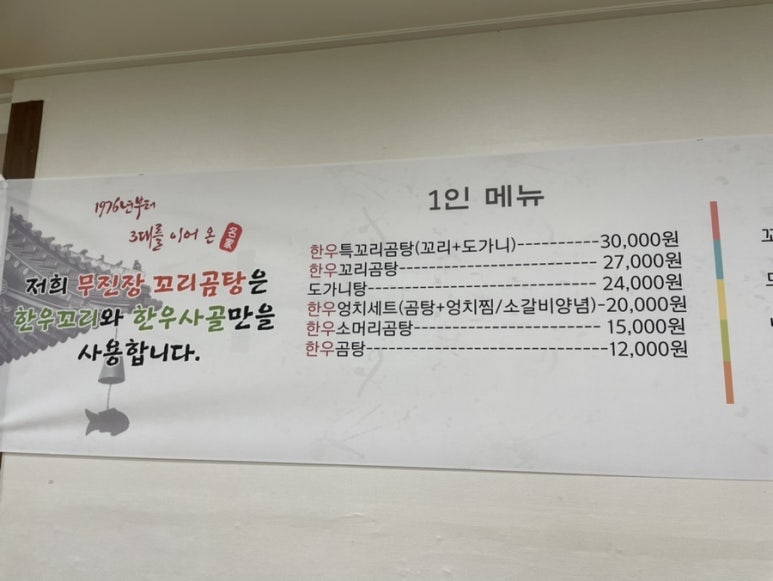 1976년부터
3대를 이어 온 名家
저희 무진장 꼬리곰탕은
한우꼬리와 한우사골만을
사용합니다.
1인 메뉴
한우특꼬리곰탕(꼬리+도가니)-----------30,000원
한우꼬리곰탕--------------------------- 27,000원
도가니탕------------------------------- 24,000원
한우엉치세트(곰탕+엉치찜/소갈비양념)-20,000원
한우소머리곰탕------------------------ 15,000원
한우곰탕-------------------------------12,000원